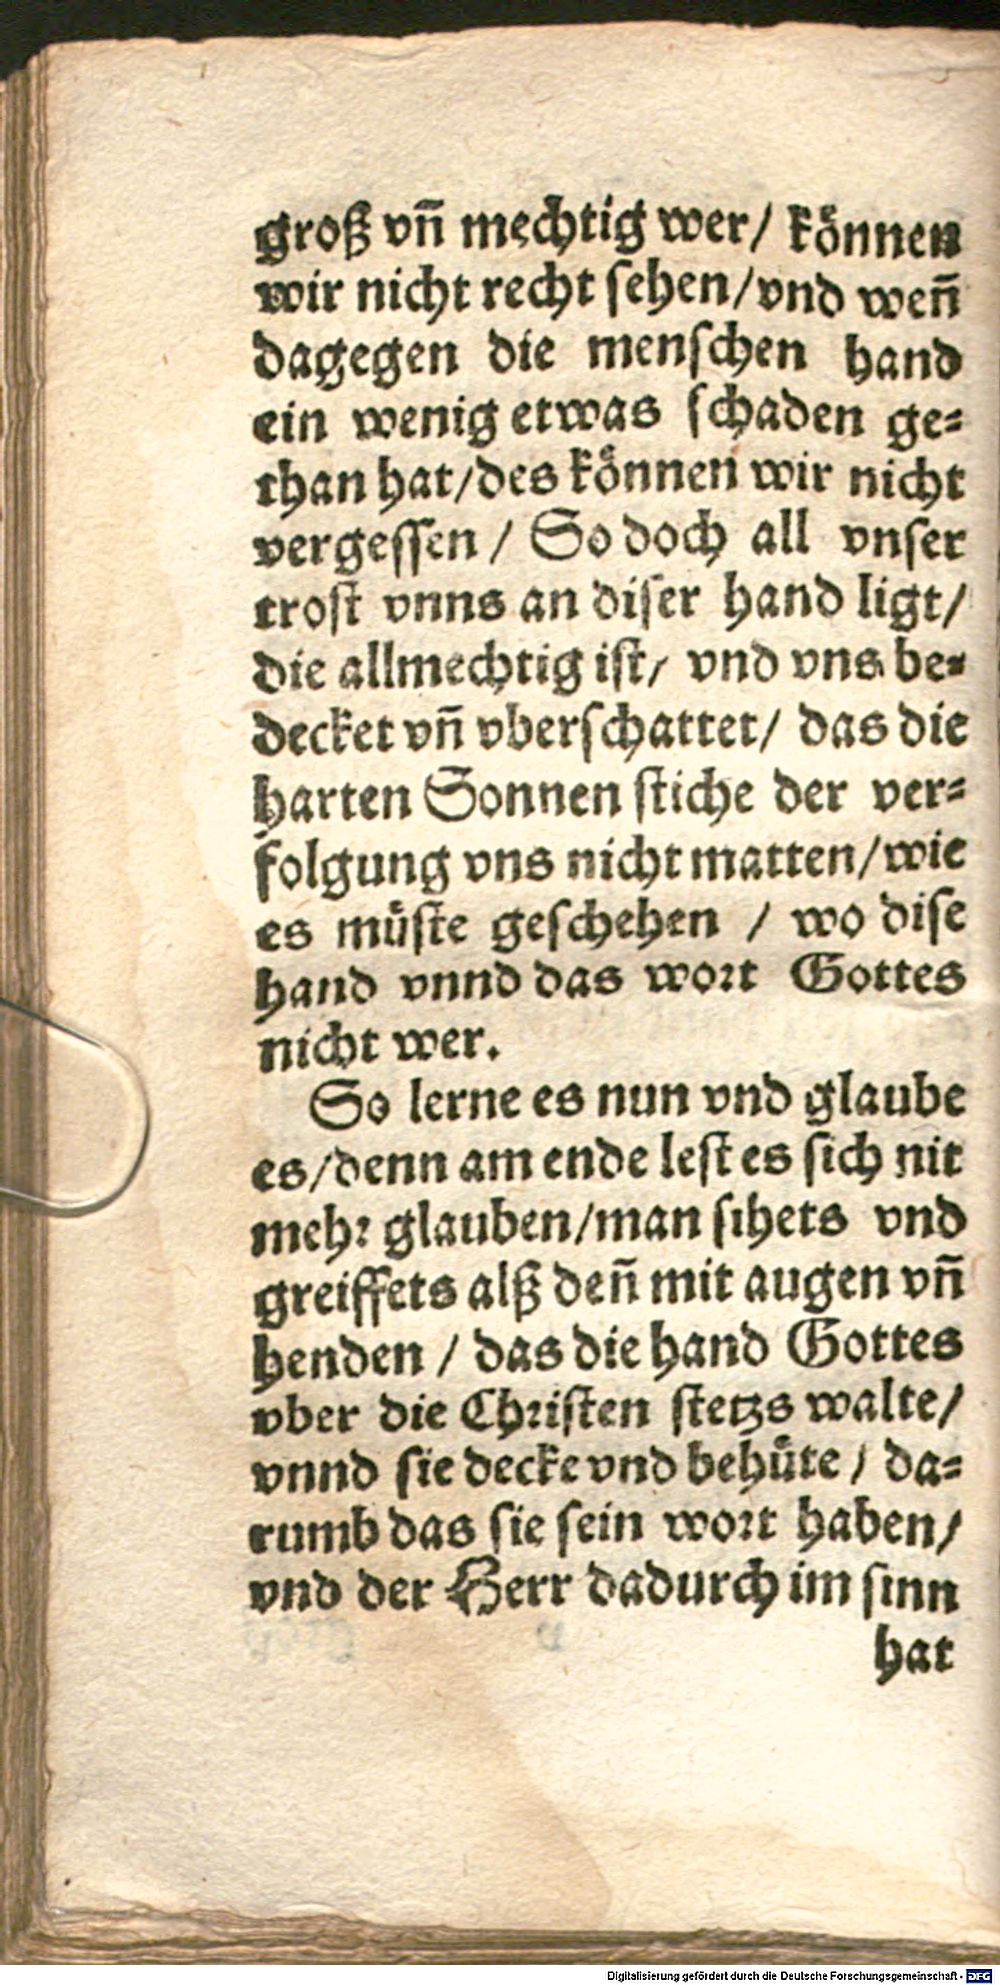 groß vñ mechtig wer/ können
wir nicht recht sehen/vnd weñ
dagegen die menschen hand
ein wenig etwas schaden ge⸗
than hat/des können wir nicht
vergessen / So doch all vnser
trost vnns an diser hand ligt/
die allmechtig ist/ vnd vns be⸗
decket vñ vberschattet/ das die
harten Sonnen stiche der ver⸗
folgung vns nicht matten/wie
es müste geschehen / wo dise
hand vnnd das wort Gottes
nicht wer.
So lerne es nun vnd glaube
es/denn am ende lest es sich nit
mehr glauben/man sihets vnd
greiffets alß deñ mit augen vñ
henden / das die hand Gottes
vber die Christen stetzs walte/
vnnd sie decke vnd behüte / da⸗
rumb das sie sein wort haben/
vnd der Herr dadurch im sinn
hat
Digitalisierung gefördert durch die Deutsche Forschungsgemeinschaft - DFG